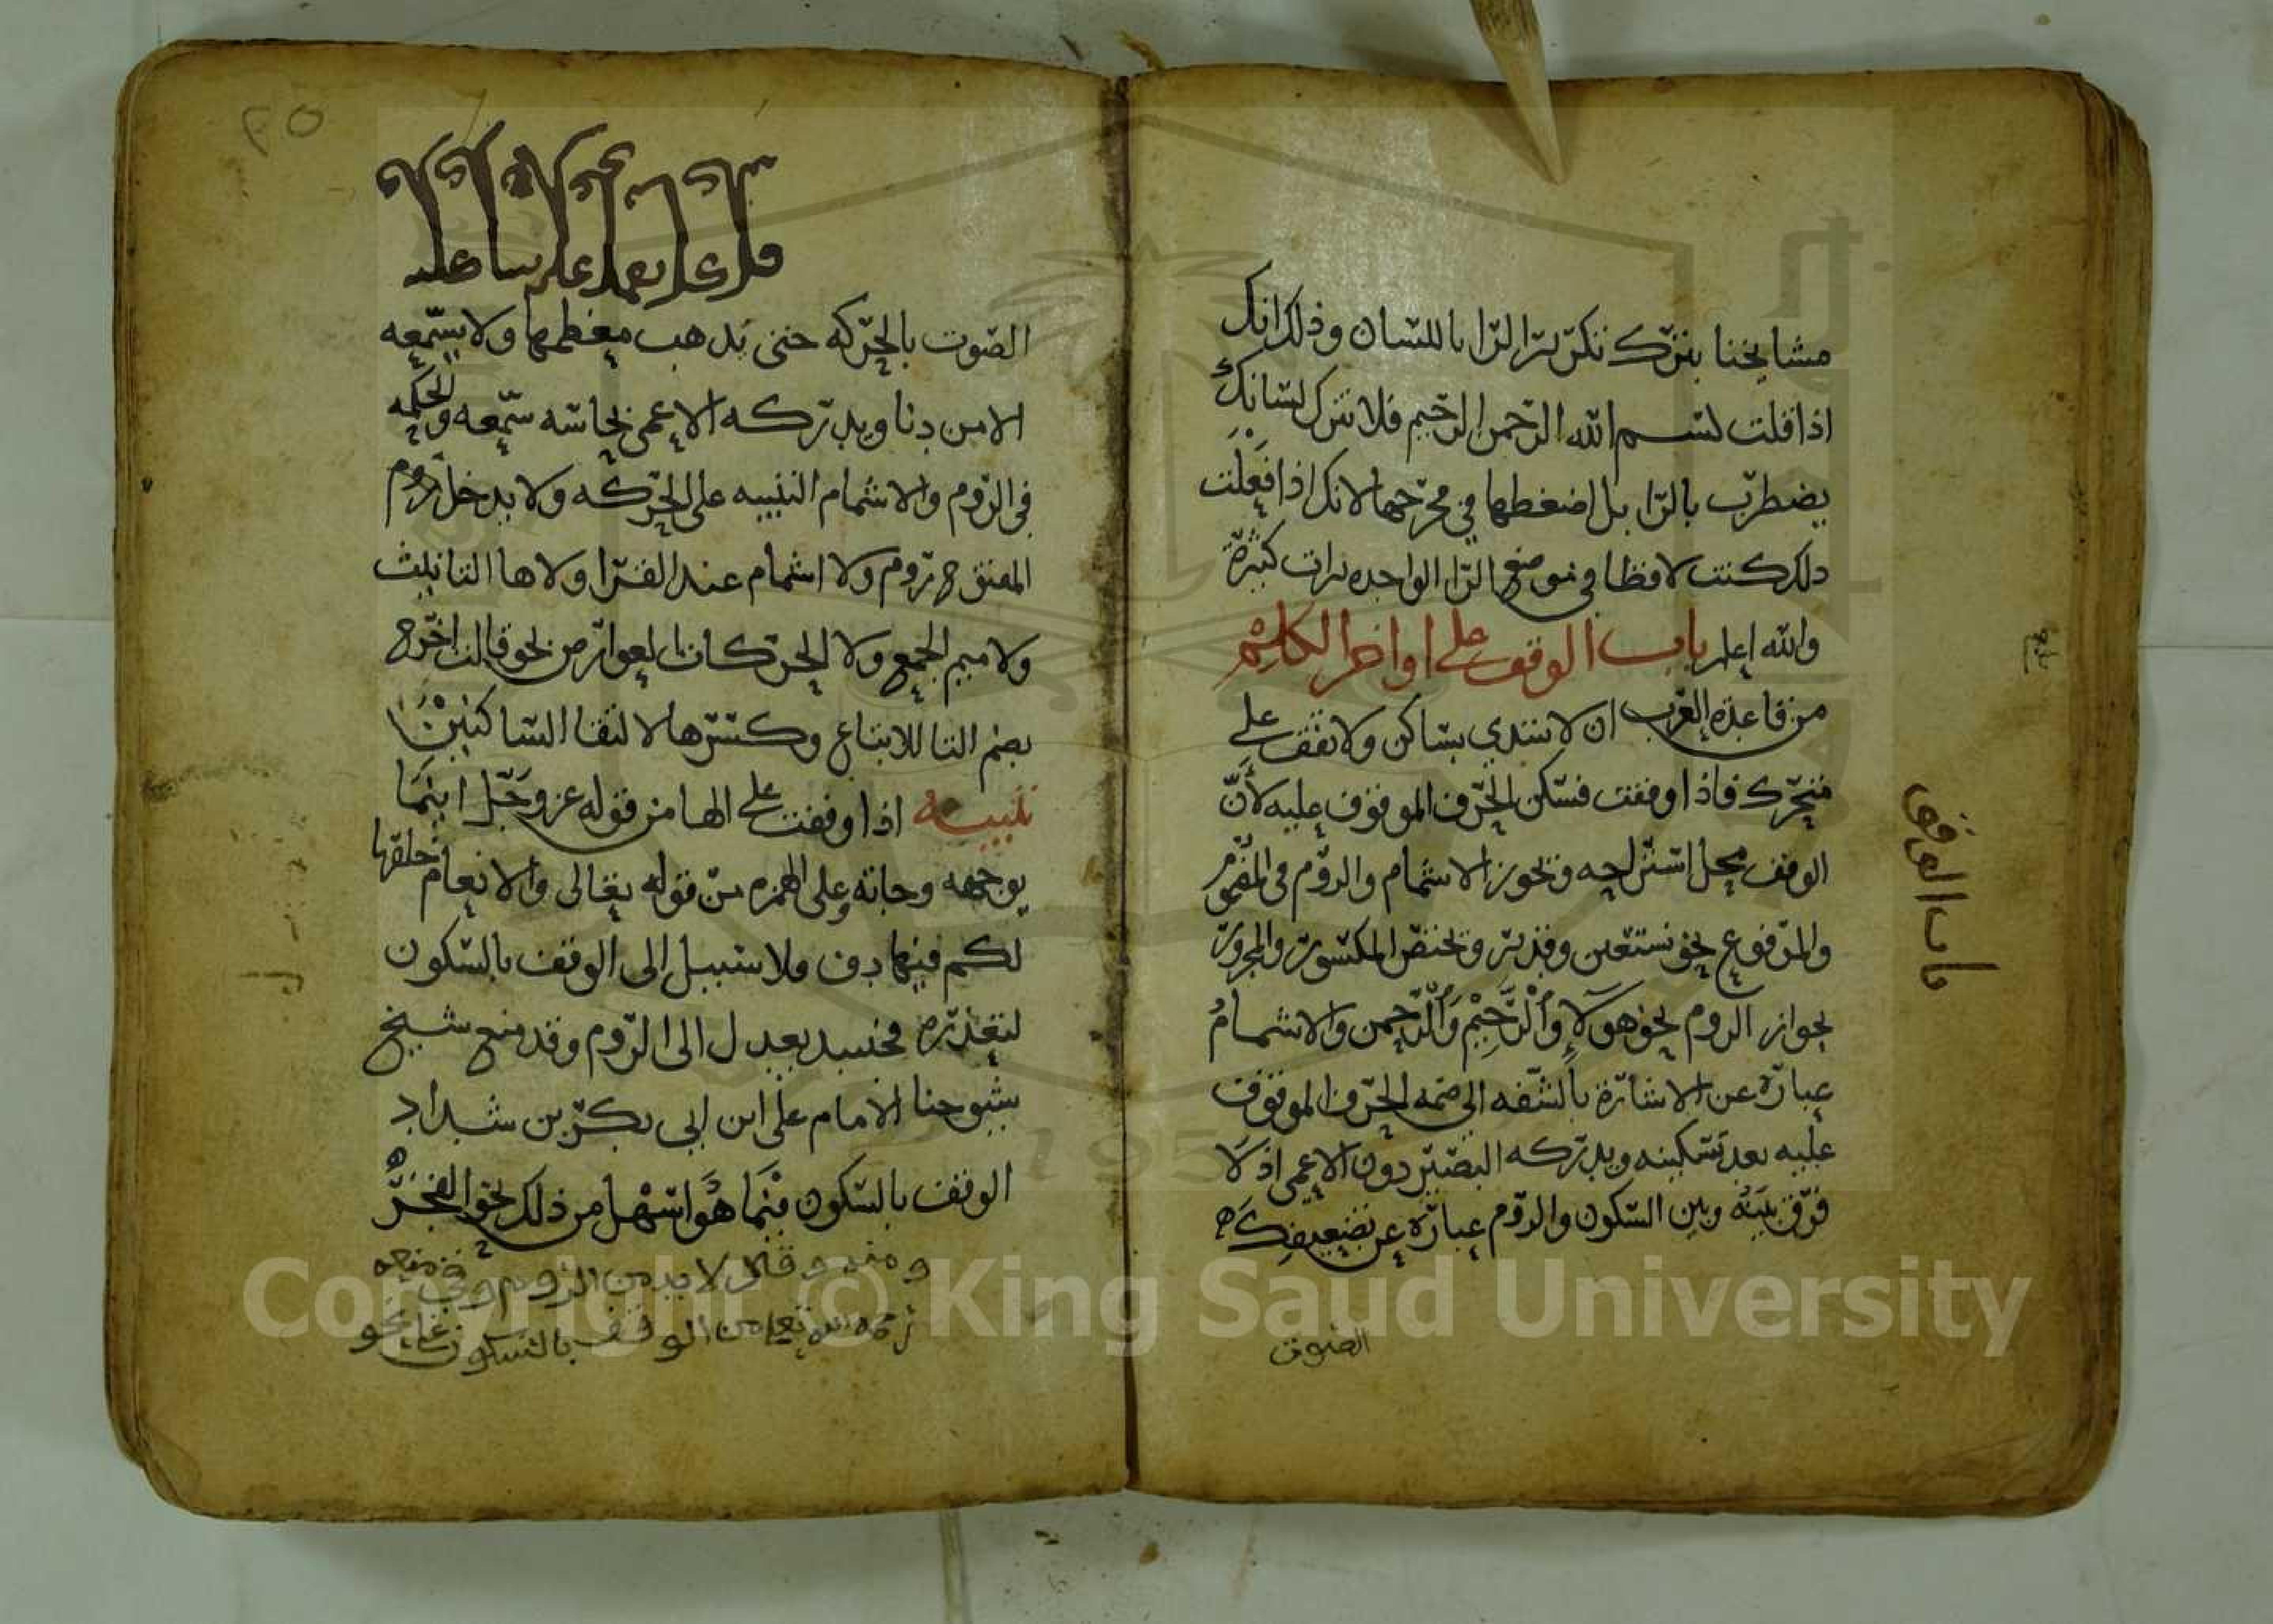 مشايخنا بترك تكرير الرا باللسان وذلك انك
اذا قلت بسم الله الرحمن الرحيم فلا تترك لسانك
يضطرب بالرا بل اضغطها في مخرجها لانك اذا فعلت
ذلك كنت لافظا في موضع الرا الواحده برات كثيرة
والله اعلم باب الوقف على اواخر الكلم
من قاعدة العرب ان لا تبتدي بساكن ولا تقف على
متحرك فاذا وقفت فسكن الحرف الموقوف عليه لأنّ
الوقف محل استراحه وتجوز الاشمام والروم في المضموم
والمرفوع نحو نستعين وقدير وتختص المكسور والمجرور
بجواز الروم نحو هولاء والرحيم والرحمن والاشمام
عبارة عن الاشارة بالشفه الى ضمه الحرف الموقوف
عليه بعد تسكينه ويدركه البصير دون الاعمى اذ لا
فرق بينه وبين السكون والروم عبارة عن تضعيفك
الصوت
باب الوقف
٢٥
الصوت بالحركه حتى تذهب معظمها ولا يسمعه
الا من دنا ويدركه الاعمى بحاسه سمعه والحكمه
في الروم والاشمام التنبيه على الحركه ولا يدخل روم
المفتوح روم ولا اشمام عند القرا ولا ها التانيث
ولا ميم الجمع ولا الحركات العوارض نحو قالت اخرج
بضم التا للاتباع وكسرها لالتقا الساكنين
تنبيه اذا وقفت على الها من قوله عز وجل اينما
يوجهه وحاته وعلى الهمزه من قوله تعالى والانعام خلقها
لكم فيها دف فلا سبيل الى الوقف بالسكون
لتعذره فحينيد يعدل الى الروم وقد منع شيخ
شيوخنا الامام على ابن ابي بكر بن شداد
الوقف بالسكون فيما هو اسهل من ذلك نحو الفجر
ومنه وقال لا بد من الروم وفي منعه
رحمه الله تعالى من الوقف بالسكون على نحو
Copyright © King Saud University
195